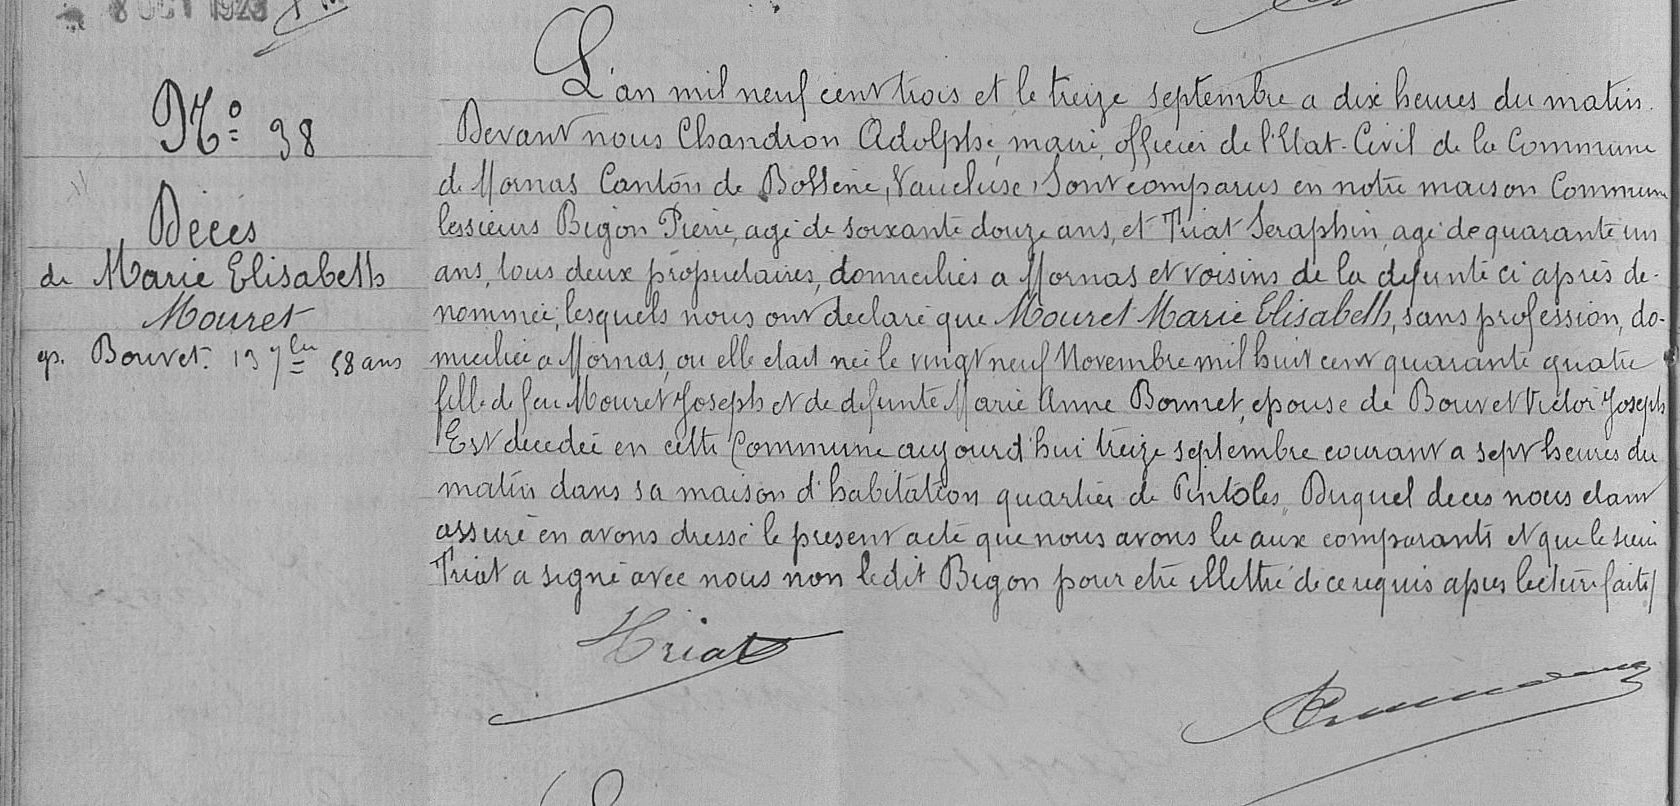 8 OCT 1923
N° 38
Décès
de Marie Elisabeth
Mouret
ép. Bouvet. 13 7bre 58 ans
L'an mil neuf cent trois et le treize septembre a dix heures du matin.
Devant nous Chandron Adolphe, maire, officier de l'Etat-Civil de la Commune
de Mornas Canton de Bollène, Vaucluse, Sont comparus en notre maison Commune
les sieurs Bigon Pierre, agé de soixante douze ans, et Triat Seraphin, agé de quarante un
ans, tous deux propriétaires, domiciliés a Mornas et voisins de la defunte ci après de-
nommée, lesquels nous ont declaré que Mouret Marie Elisabeth, sans profession, do-
miciliée a Mornas, ou elle etait née le vingt neuf Novembre mil huit cent quarante quatre
fille de feu Mouret Joseph et de defunte Marie Anne Bonnet, epouse de Bouvet Victor Joseph
Est decedée en cette Commune aujourd'hui treize septembre courant a sept heures du
matin dans sa maison d'habitation quartier de Pintoles. Duquel deces nous etant
assuré en avons dressé le present acte que nous avons lu aux comparants et que le sieur
Triat a signé avec nous non ledit Bigon pour etre illettré de ce requis apres lecture faite/
Triat